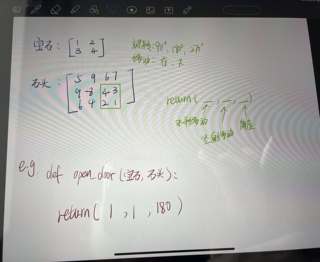 宝石: [1 2
3 4]
旋转: 90°, 180°, 270°
移动: 右 下
石头: [5 9 6 7
9 8 4 3
6 4 2 1]
return( _ , _ , _ )
角度
e.g. def open_door(宝石, 石头):
return( 1 , 1 , 180 )